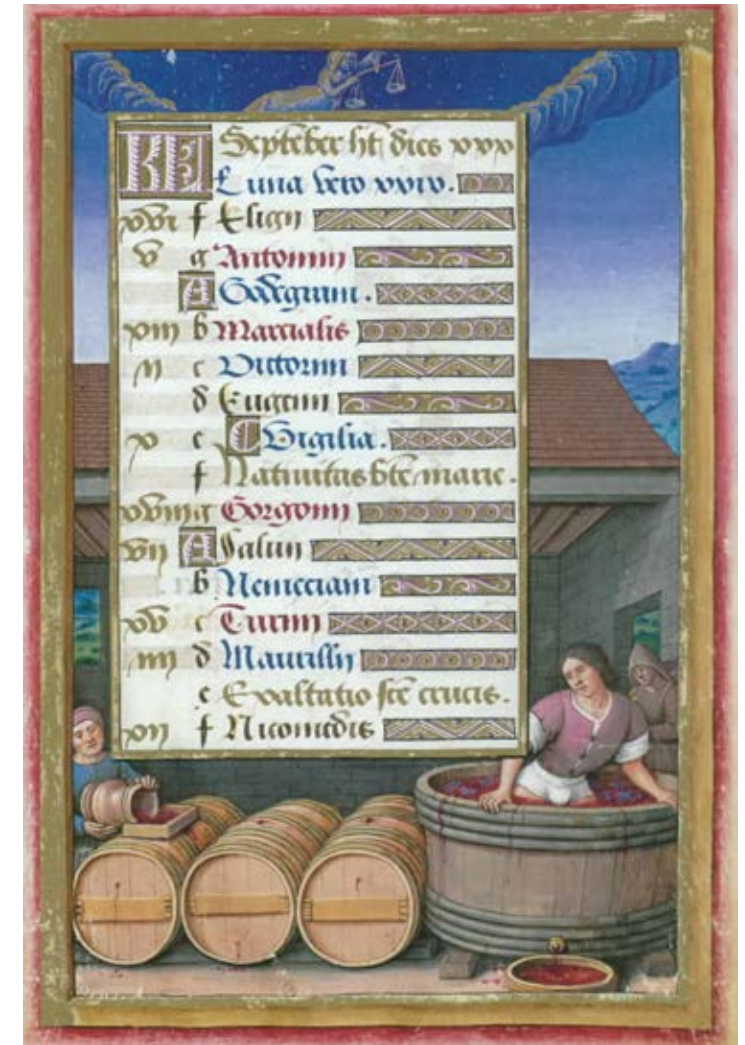 KL September ht dies xxx
Luna vero xxix.
xvi f Eligii
v g Antonini
A Godegrani.
xiii b Marcialis
ii c Victorini
d Eugenii
x e Vigilia.
f Nativitas bte marie.
xviii g Gorgonii
vii A Salvii
b Nemeciani
xv c Cirini
iiii d Maurilii
e Exaltatio sce crucis.
xii f Nicomedis